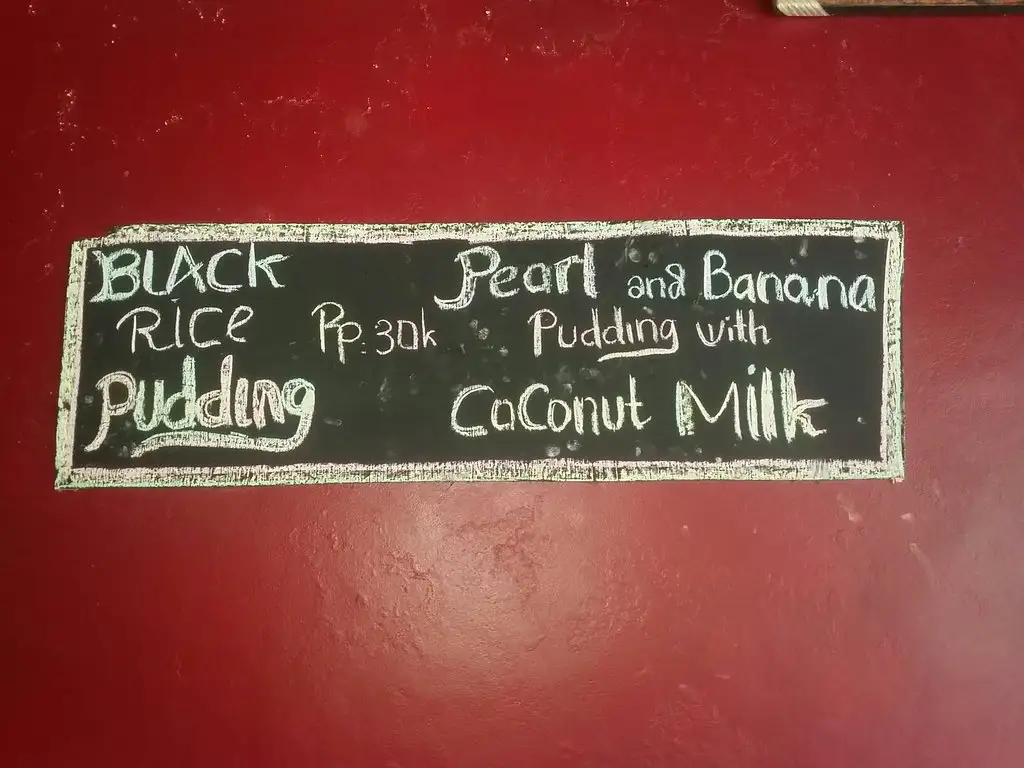 BLACK
RICE
Pudding
Rp. 30k
Pearl and Banana
Pudding with
CoConut Milk